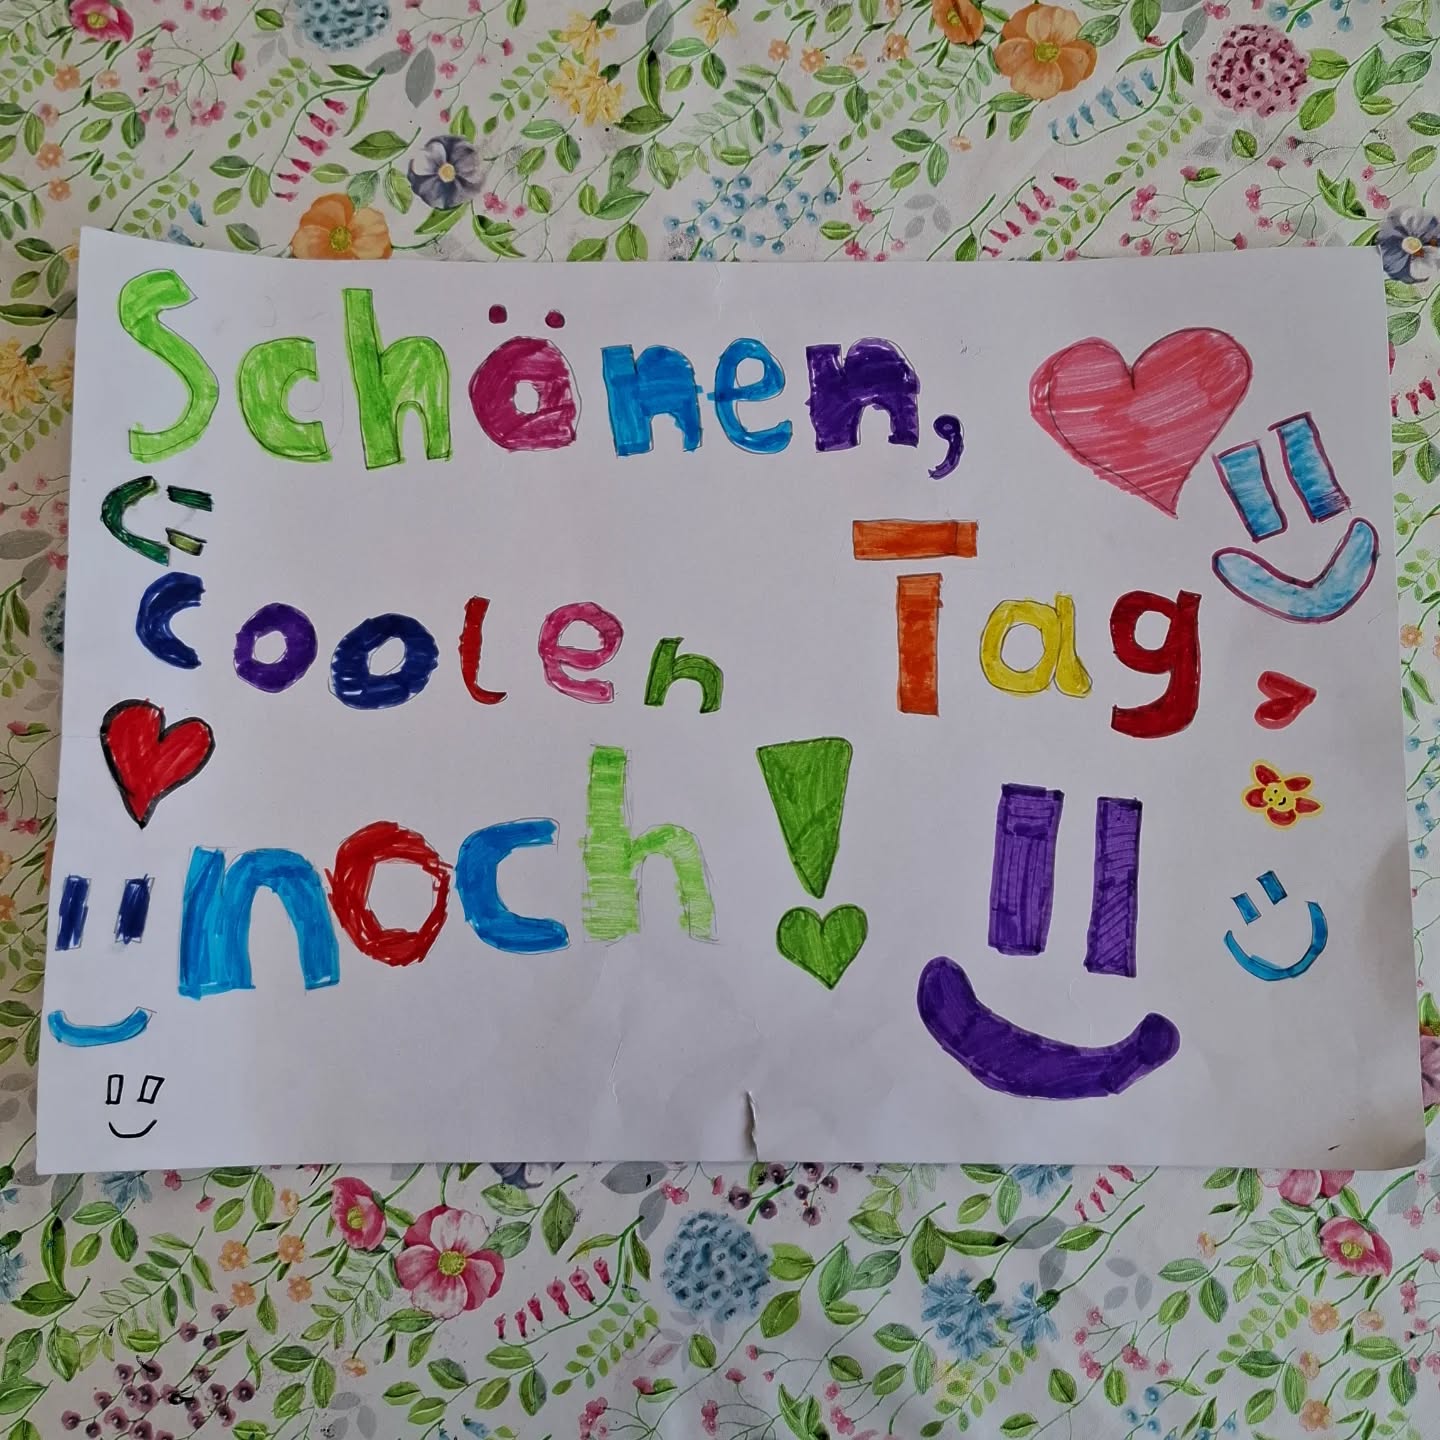 Schönen,
coolen Tag
noch!